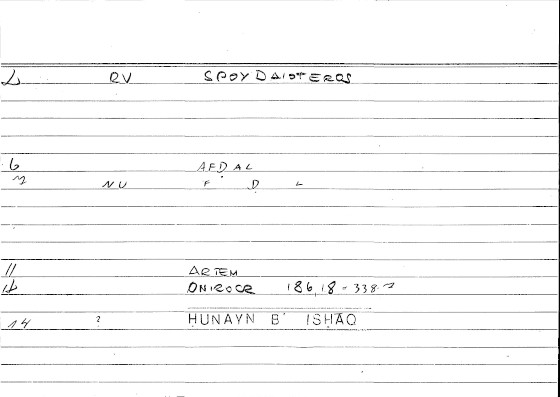 RV SPOYDAIOTEROS
6 AFḌAL
NU F Ḍ L
11 ARTEM
ONIROCR 186,18 - 338
14 ? ḤUNAYN B' ISḤAQ